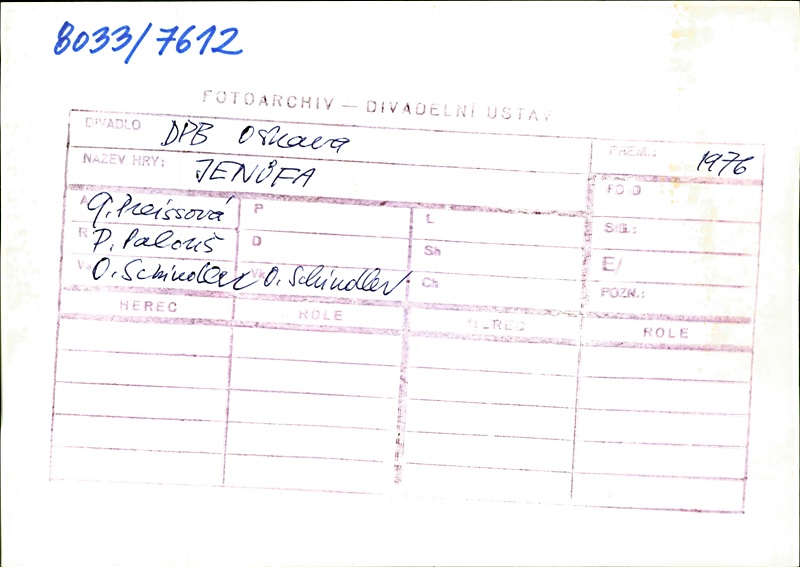 8033/7612
FOTOARCHIV — DIVADELNÍ ÚSTAV
DIVADLO DPB Ostrava PREM.: 1976
NÁZEV HRY: JENŮFA FOTO
A G. Preissová P L SIG.:
R P. Palouš D Sh E/
V O. Schindler Vk O. Schindler Ch POZN.:
HEREC ROLE HEREC ROLE